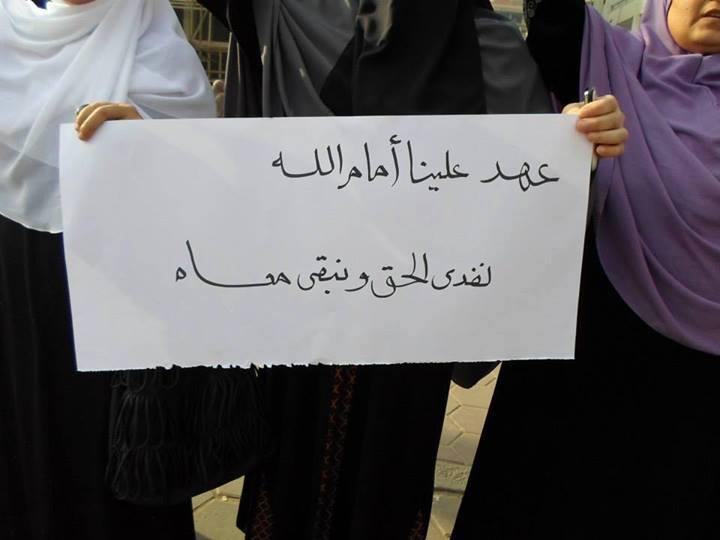 عهد علينا أمام الله
نفدى الحق ونبقى معاه